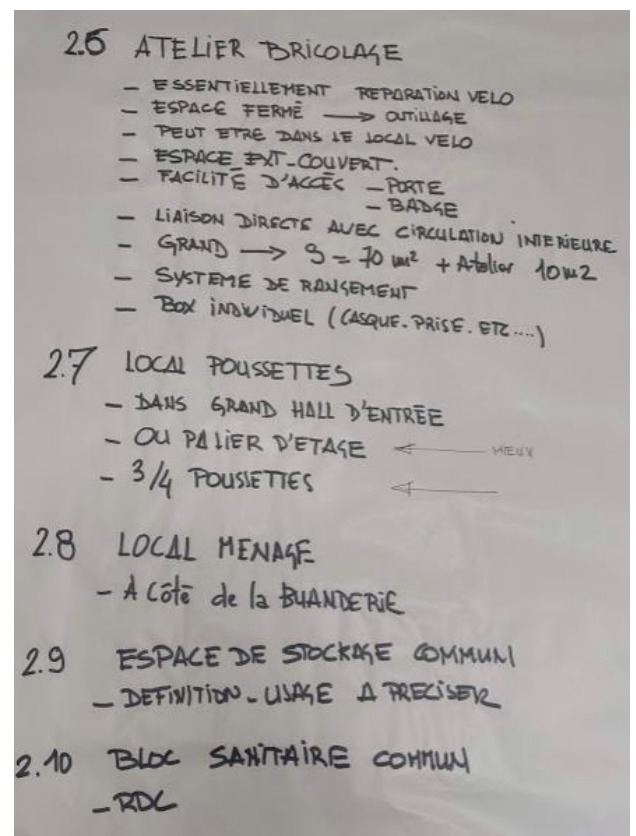 2.6 ATELIER BRICOLAGE
- ESSENTIELLEMENT REPARATION VELO
- ESPACE FERMÉ → OUTILLAGE
- PEUT ETRE DANS LE LOCAL VELO
- ESPACE EXT-COUVERT.
- FACILITÉ D'ACCÉS - PORTE
- BADGE
- LIAISON DIRECTE AVEC CIRCULATION INTERIEURE
- GRAND → S = 70 m² + Atelier 10m2
- SYSTEME DE RANGEMENT
- BOX INDIVIDUEL (CASQUE. PRISE. ETC....)
2.7 LOCAL POUSSETTES
- DANS GRAND HALL D'ENTRÉE
- OU PALIER D'ETAGE ← MIEUX
- 3/4 POUSSETTES ←
2.8 LOCAL MENAGE
- A Côté de la BUANDERIE
2.9 ESPACE DE STOCKAGE COMMUN
- DEFINITION - USAGE A PRECISER
2.10 BLOC SANITAIRE COMMUN
- RDC